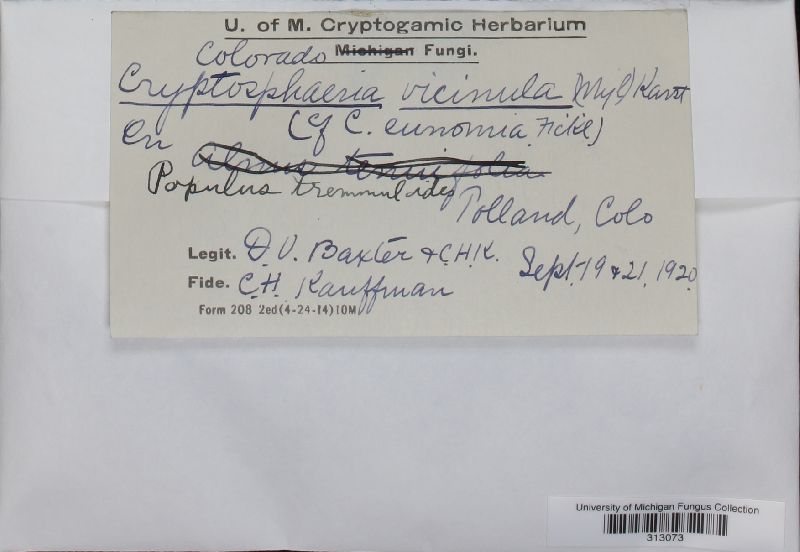 U. of M. Cryptogamic Herbarium
Colorado Michigan Fungi.
Cryptosphaeria vicinula (Nyl) Karst
(Cf C. eunomia Fckl)
On Alnus tenuifolia
Populus tremmuloides
Tolland, Colo
Legit. D.V. Baxter & C.H.K.
Sept. 19 & 21, 1920
Fide. C.H. Kauffman
Form 208 2ed(4-24-14)10M
University of Michigan Fungus Collection
313073